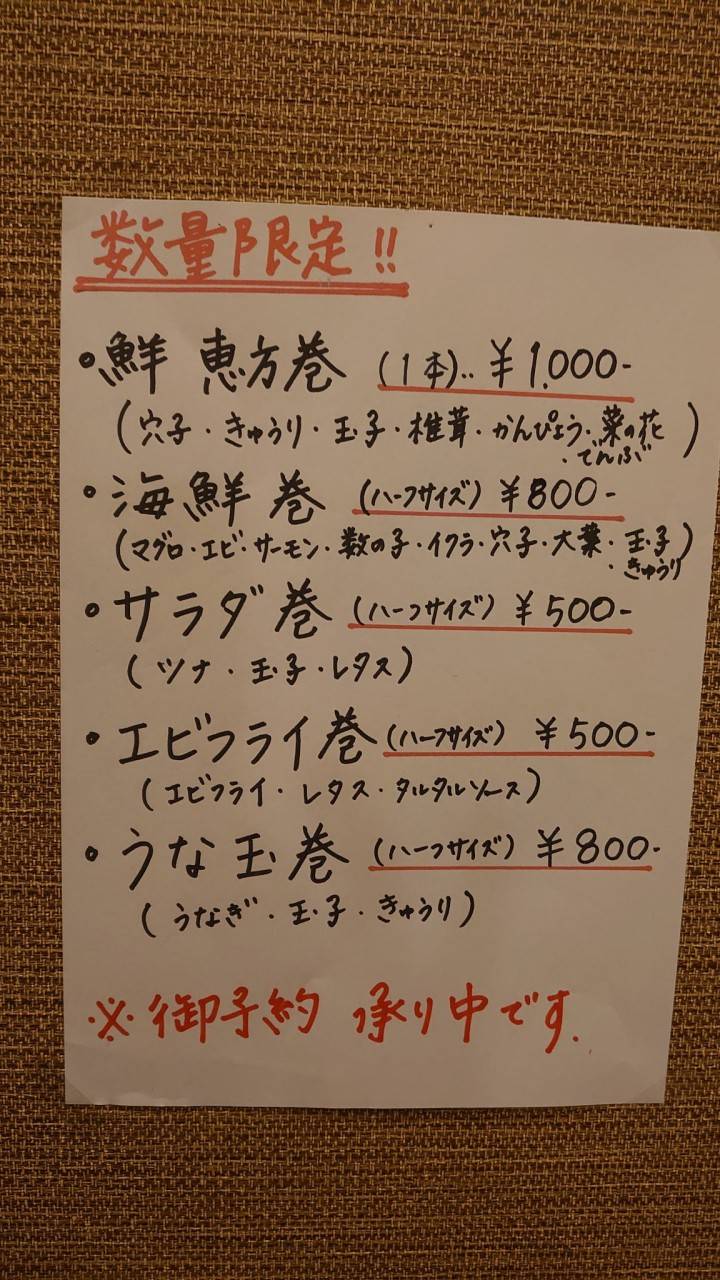 数量限定!!
・鮮 恵方巻 (1本)‥ ¥1,000-
(穴子・きゅうり・玉子・椎茸・かんぴょう・菜の花
・でんぶ)
・海鮮巻 (ハーフサイズ) ¥800-
(マグロ・エビ・サーモン・数の子・イクラ・穴子・大葉・玉子
・きゅうり)
・サラダ巻 (ハーフサイズ) ¥500-
(ツナ・玉子・レタス)
・エビフライ巻 (ハーフサイズ) ¥500-
(エビフライ・レタス・タルタルソース)
・うな玉巻 (ハーフサイズ) ¥800-
(うなぎ・玉子・きゅうり)
※御予約 承り中です.